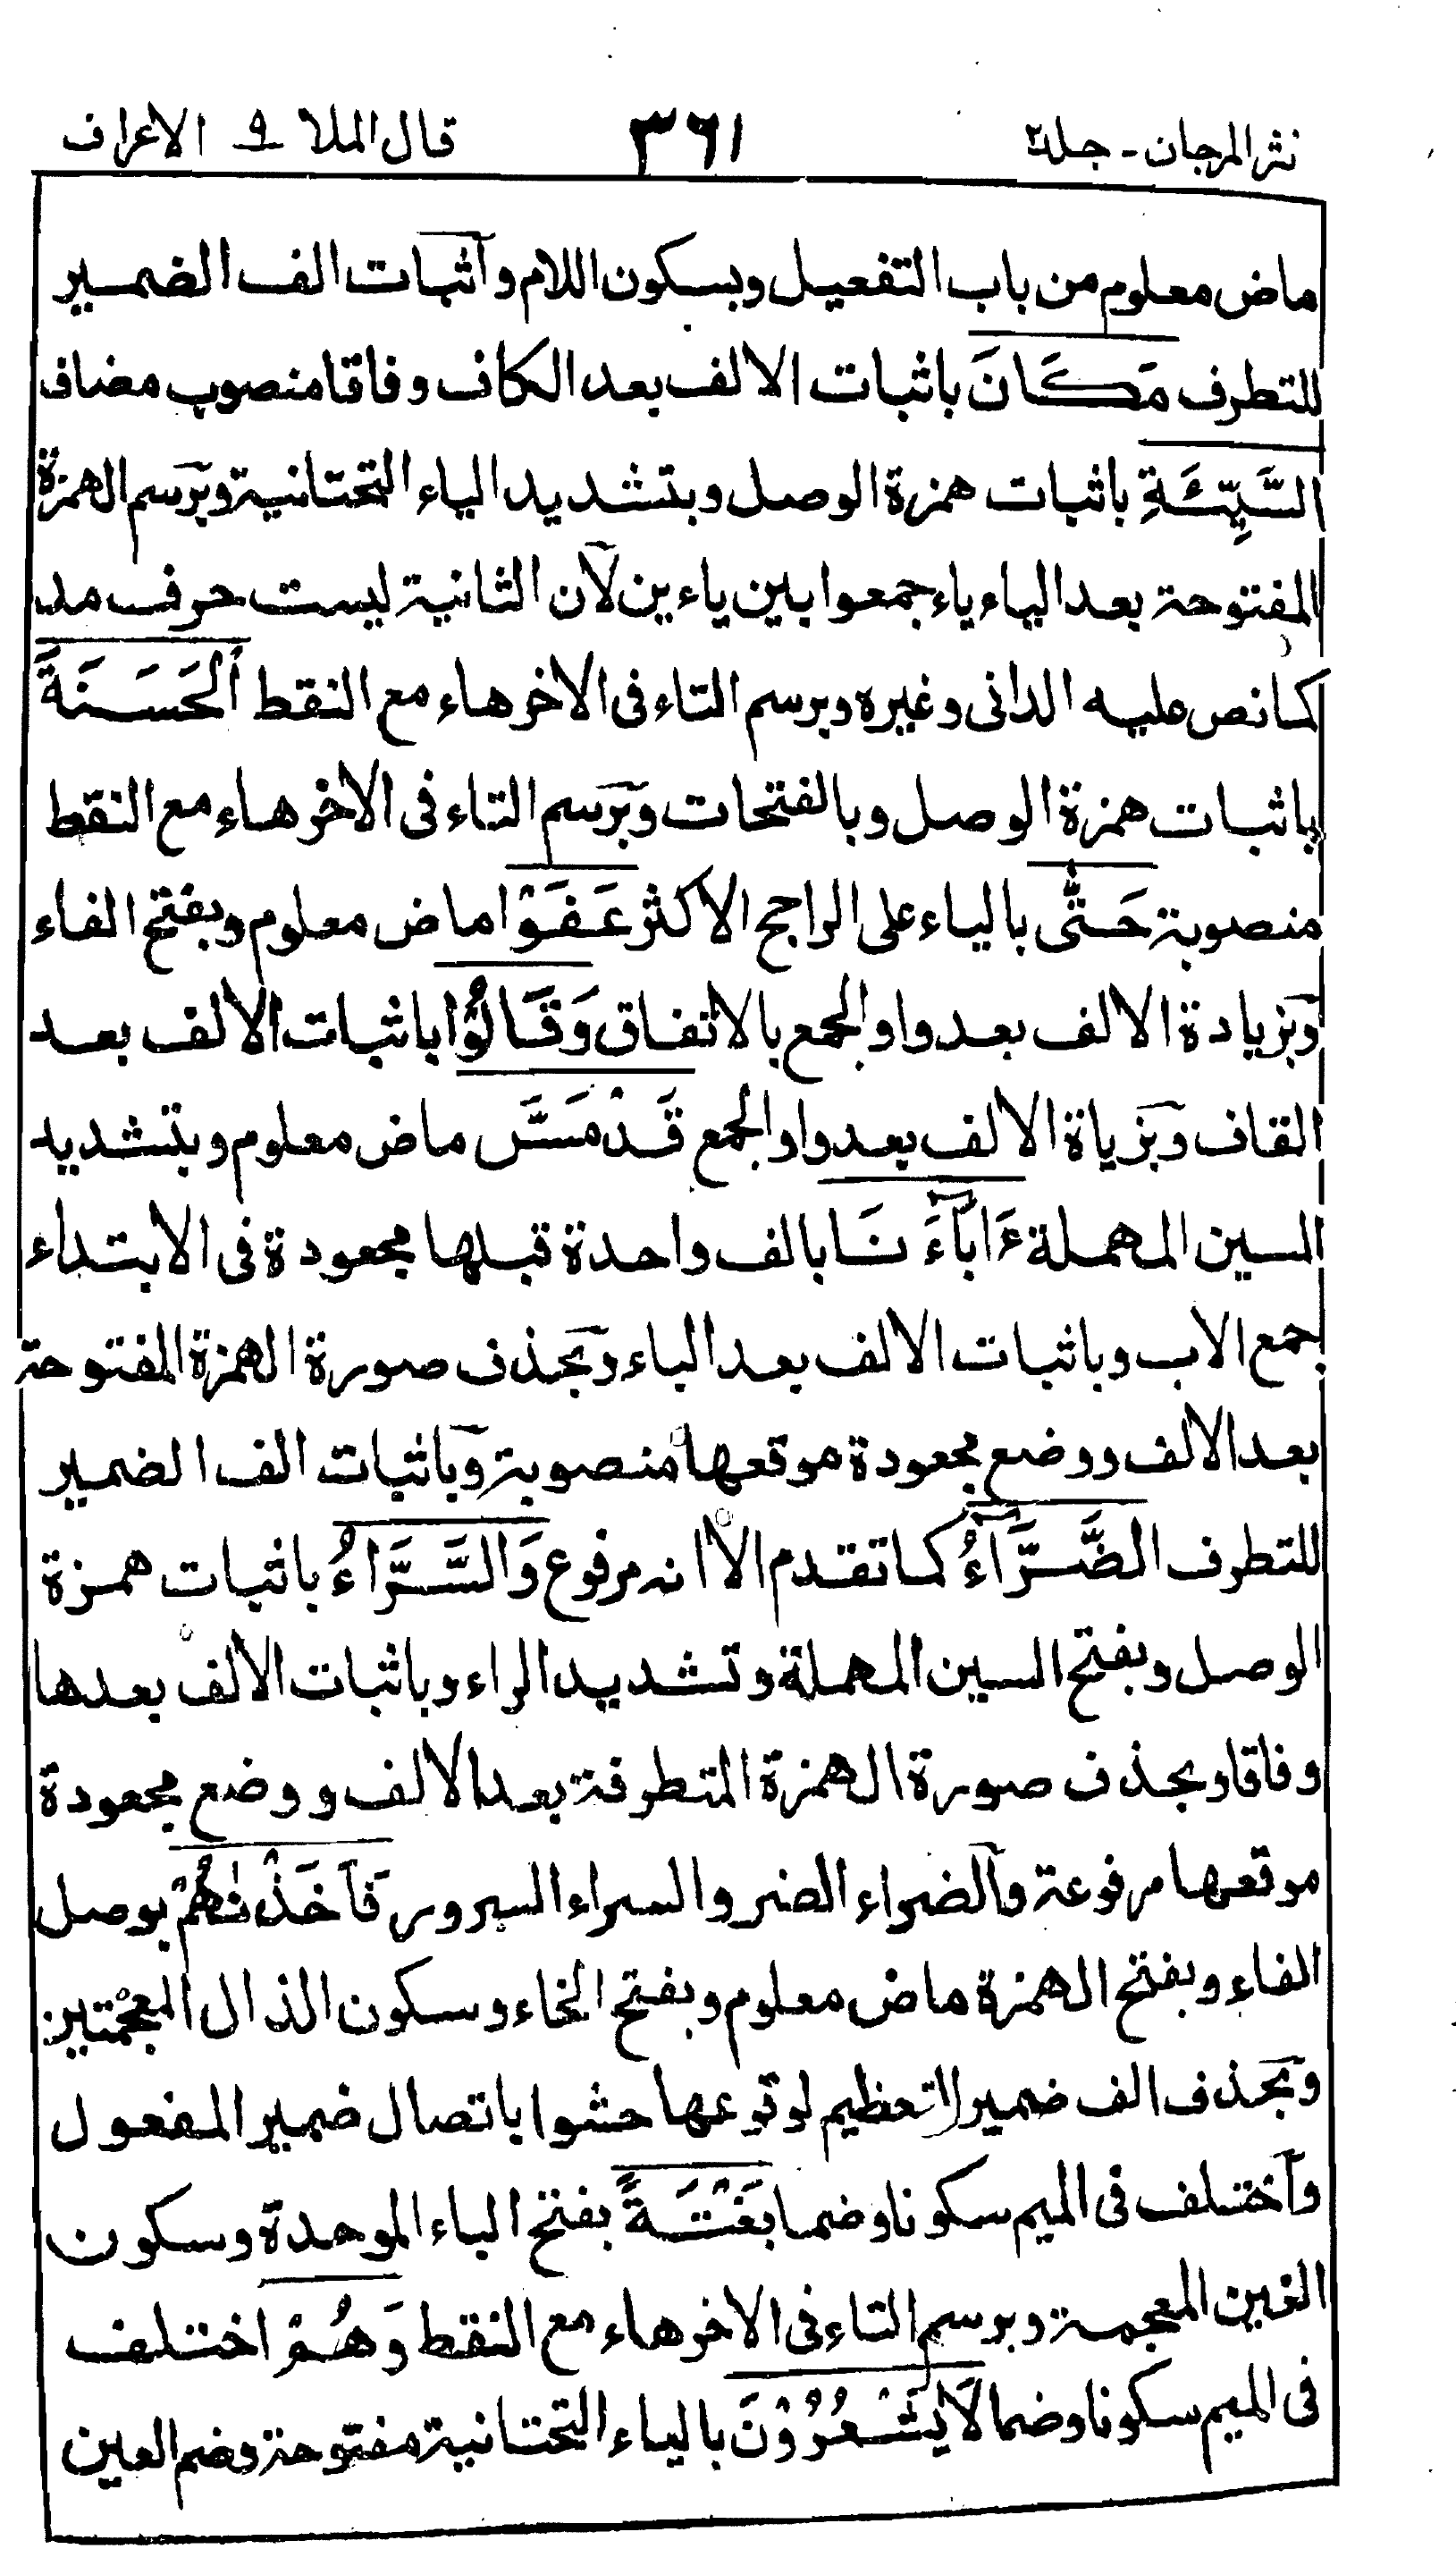 نثر المرجان - جلد٢ ٣٦١ قال الملا ٩ الاعراف
ماض معلوم من باب التفعيل وبسكون اللام وآثبات الف الضمير
للتطرف مَكَانَ باثبات الالف بعد الكاف وفاقا منصوب مضاف
السَّيِّئَةِ باثبات همزة الوصل وبتشديد الياء التحتانية وبرسم الهمزة
المفتوحة بعد الياء ياء جمعوا بين ياءين لآن الثانية ليست حرف مد
كما نص عليه الدانى وغيره وبرسم التاء فى الاخر هاء مع النقط اَلْحَسَنَةَ
باثبات همزة الوصل وبالفتحات وبرسم التاء فى الاخر هاء مع النقط
منصوبة حَتّٰى بالياء على الراجح الاكثر عَفَوْا ماض معلوم وبفتح الفاء
وبزيادة الالف بعد واو الجمع بالاتفاق وَقَالُوْا باثبات الالف بعد
القاف وبزياة الالف بعد واو الجمع قَدْ مَسَّ ماض معلوم وبتشديد
السين المهملة ءَابَآءَنَا بالف واحدة قبلها مجعودة فى الابتداء
جمع الاب وباثبات الالف بعد الباء وبحذف صورة الهمزة المفتوحة
بعد الالف ووضع مجعودة موقعها منصوبة وباثبات الف الضمير
للتطرف الضَّرَّآءُ كما تقدم الا انه مرفوع وَالسَّرَّاءُ باثبات همزة
الوصل وبفتح السين المهملة وتشديد الراء وباثبات الالف بعدها
وفاقا وبحذف صورة الهمزة المتطرفة بعد الالف ووضع مجعودة
موقعها مرفوعة وآلضراء الضر والسراء السرور فَاَخَذْنٰهُمْ بوصل
الفاء وبفتح الهمزة ماض معلوم وبفتح الخاء وسكون الذال المعجمتين
وبحذف الف ضمير التعظيم لوقوعها حشوا باتصال ضمير المفعول
وآختلف فى الميم سكونا وضما بَغْتَةً بفتح الباء الموحدة وسكون
الغين المعجمة وبرسم التاء فى الاخر هاء مع النقط وَهُمْ اختلف
فى الميم سكونا وضما لَايَشْعُرُوْنَ بالياء التحتانية مفتوحة وضم العين